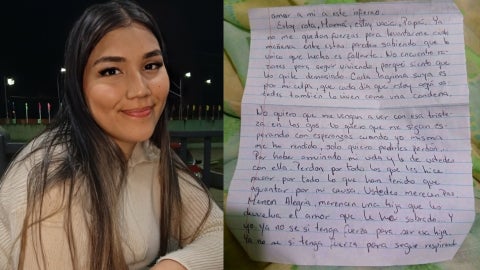 amor a mi a este afierno.
Estoy rota, Mamá, estoy vacía, Papá. Ya
no me quedan fuerzas para levantarme cada
mañana entre estas paredes sabiendo que lo
único que hecho es fallarte. No encuentro ra-
zones para seguir viviendo, porque siento que
los quite demasiado. Cada lagrima suya es
por mi culpa, que cada día que estoy aquí us-
tedes tambien lo viven como una condena.
No quiero que me vengan a ver con esa triste-
za en los ojos. No quiero que me sigan es-
perando con esperanzas cuando yo misma
me he rendido, solo quiero pedirles perdón.
Por haber arruinado mi vida y la de ustedes
con ella. Perdon por todo lo que les hice
pasar por todo lo que han tenido que
aguantar por mi causa. Ustedes merecen Paz.
Merecen Alegría, merecen una hija que les
devuelva el amor que le ha sobrado. Y
yo ya no se si tengo fuerza para ser esa hija.
Ya no se si tenga fuerza para seguir respirando